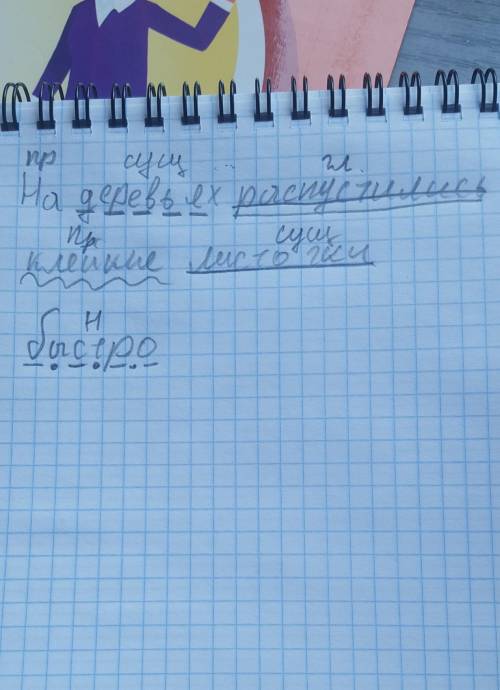 пр сущ гл.
На деревьях распустились
пр сущ
клейкие листочки
Н
быстро